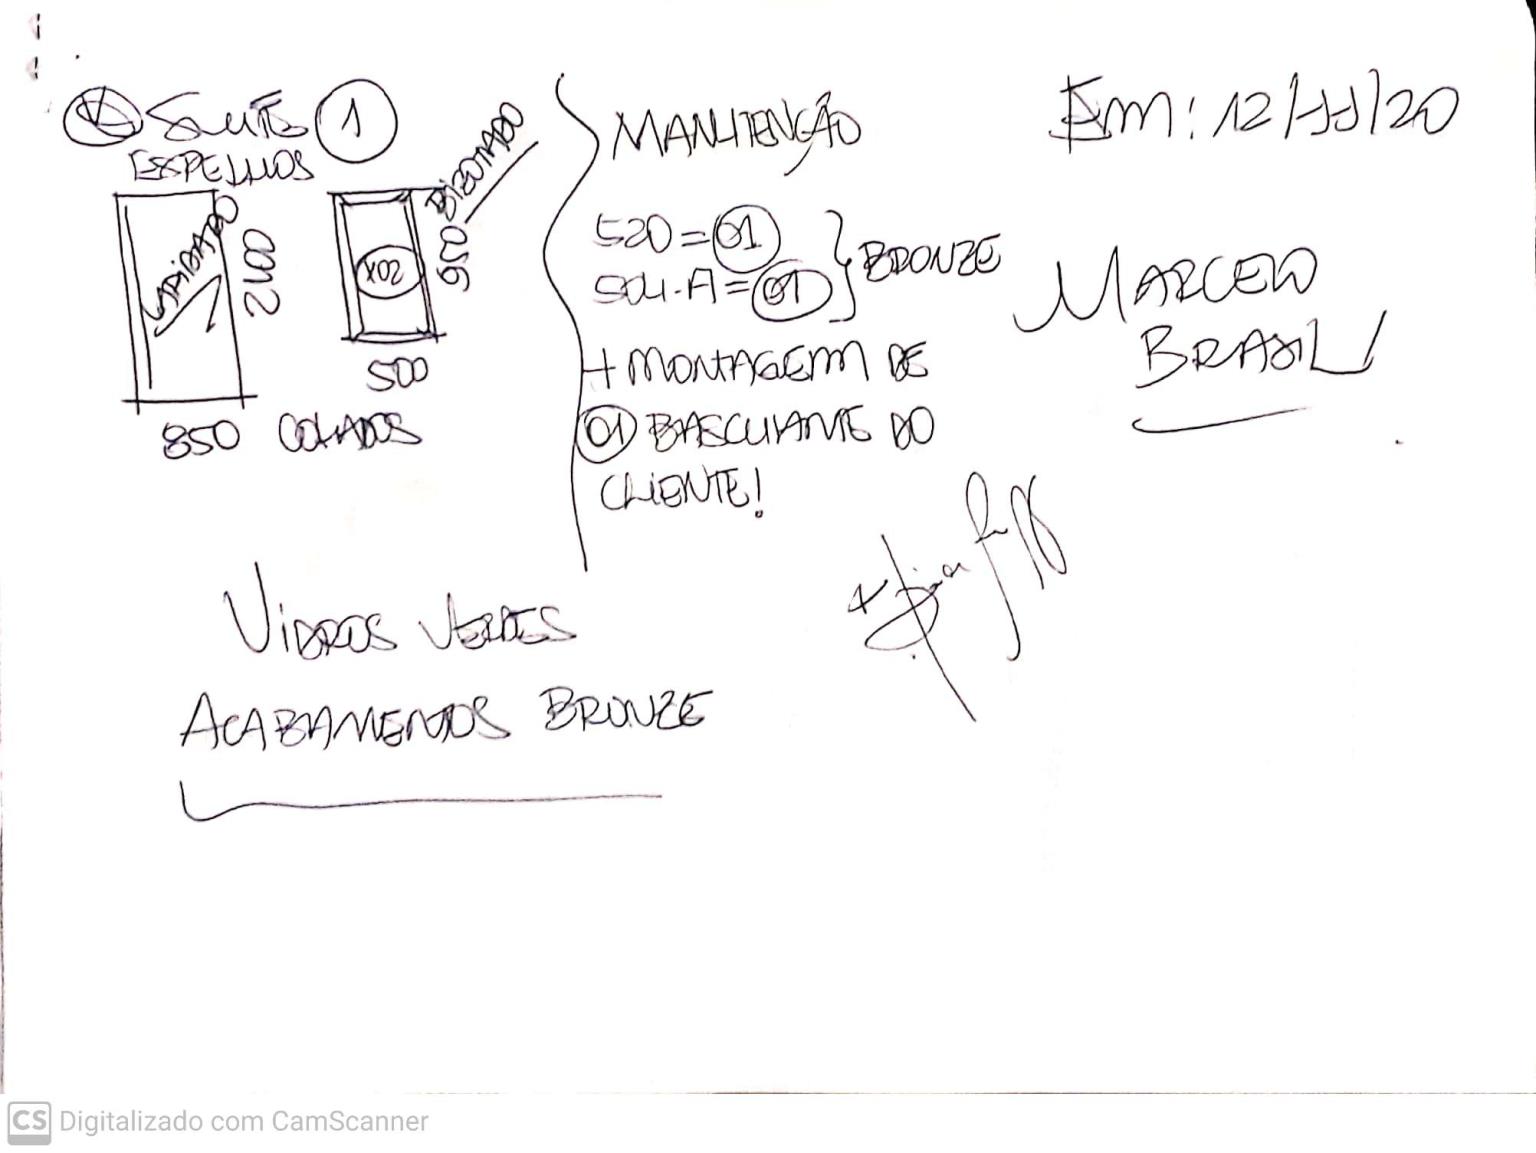 SUÍTE 1
ESPELHOS
LAPIDADO
2100
850
BIZOTADO
20X
950
500
COLADOS
MANUTENÇÃO
520 = 01
504-A = 01
BRONZE
+ MONTAGEM DE
01 BASCULANTE DO
CLIENTE!
Em: 12/11/20
MARCELO
BRASIL
VIDROS VERDES
ACABAMENTOS BRONZE
CS Digitalizado com CamScanner